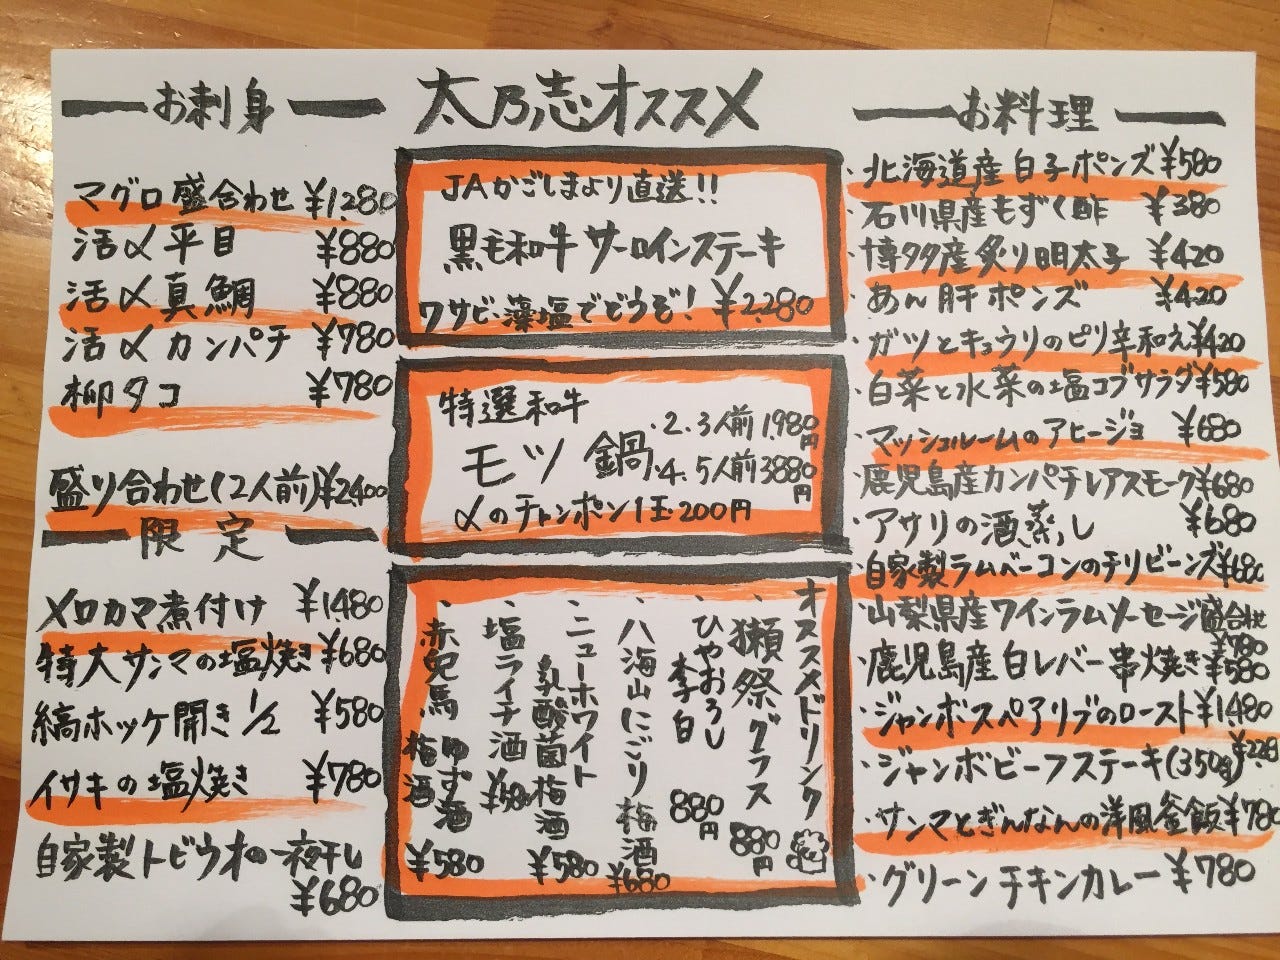 太乃志オススメ
お刺身
マグロ盛合わせ ¥1,280
活〆平目 ¥880
活〆真鯛 ¥880
活〆カンパチ ¥780
柳タコ ¥780
盛り合わせ(2人前)¥2,400
限定
メロカマ煮付け ¥1,480
特大サンマの塩焼き ¥680
縞ホッケ開き1/2 ¥580
イサキの塩焼き ¥780
自家製トビウオの一夜干し
¥680
JAかごしまより直送!!
黒毛和牛サーロインステーキ
ワサビ・藻塩でどうぞ! ¥2,280
特選和牛
モツ鍋
・2.3人前1,980円
・4.5人前3880円
〆のチャンポン1玉200円
オススメドリンク
・獺祭グラス 880円
・ひやおろし
李白 880円
・八海山にごり梅酒 ¥680
・ニューホワイト
乳酸菌梅酒 ¥580
・塩ライチ酒 ¥580
・赤兎馬 ゆず酒
梅酒 ¥580
お料理
・北海道産白子ポンズ ¥580
・石川県産もずく酢 ¥380
・博多産炙り明太子 ¥420
・あん肝ポンズ ¥420
・ガツとキュウリのピリ辛和え¥420
・白菜と水菜の塩コブサラダ¥580
・マッシュルームのアヒージョ ¥680
・鹿児島産カンパチレアスモーク¥680
・アサリの酒蒸し ¥680
・自家製ラムベーコンのチリビーンズ¥680
・山梨県産ワインラムソーセージ盛合せ
¥780
・鹿児島産白レバー串焼き¥580
・ジャンボスペアリブのロースト¥1,480
・ジャンボビーフステーキ(350g)
・サンマとぎんなんの洋風釜飯¥780
・グリーンチキンカレー ¥780